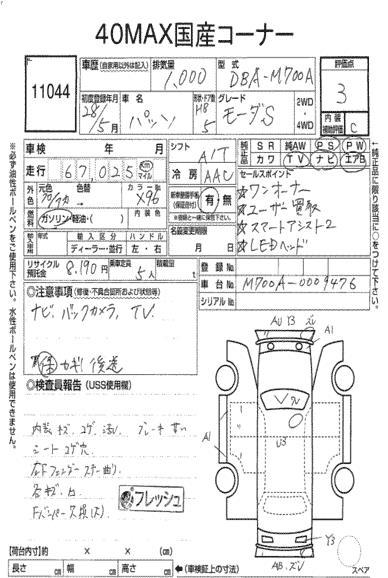 40MAX国産コーナー
11044
車歴 (自家用以外は記入)
排気量
1,000
型式
DBA-M700A
評価点
3
初度登録年月
28/5月
車名
パッソ
形状・ドア数
HB
5
グレード
モーダS
2WD・4WD
内装補助評価
C
車検 年 月
走行 67,025 Km マイル
シフト
A/T
冷房
AAC
純正品
SR 純AW PS PW
カワ TV ナビ エアB
外色
元色
色替
カラーNo
X96
燃料
ガソリン・軽油・( )
内装色
新車整備手帳(保証書付)
有・無
※登録と一緒に保管下さい。
輸入車
年式
輸入区分
ハンドル
ディーラー・並行
左・右
名義変更期限
月 日
セールスポイント
☆ワンオーナー
☆ユーザー買取
☆スマートアシスト2
☆LEDヘッド
リサイクル預託金
8,190円
乗車定員
5人
積載量
t
登録No.
車台No.
M700A-0009476
シリアルNo.
◎注意事項 (修復・不具合箇所および状態等)
ナビ、バックカメラ、TV.
カギ 後送
◎検査員報告 (USS使用欄)
シートコゲ穴
フレッシュ
※必ず油性ボールペンをご使用下さい。水性ボールペンは使用できません。
←純正品に限り該当に○をつけて下さい。
AU Y3 ズレ
A1
A1
U3
Y3
AB.ズレ
スペア
【荷台内寸】 × × (cm)
長さ cm 幅 cm 高さ cm ←(車検証上の寸法)